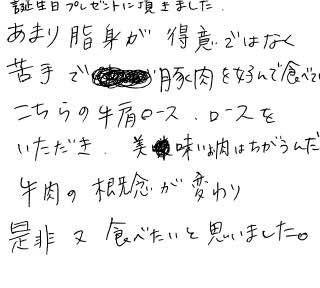 誕生日プレゼントに頂きました.
あまり脂身が得意ではなく
苦手で豚肉を好んで食べてい
こちらの牛肩ロース、ロースを
いただき、美味いお肉はちがうんだ
牛肉の概念が変わり
是非又食べたいと思いました。